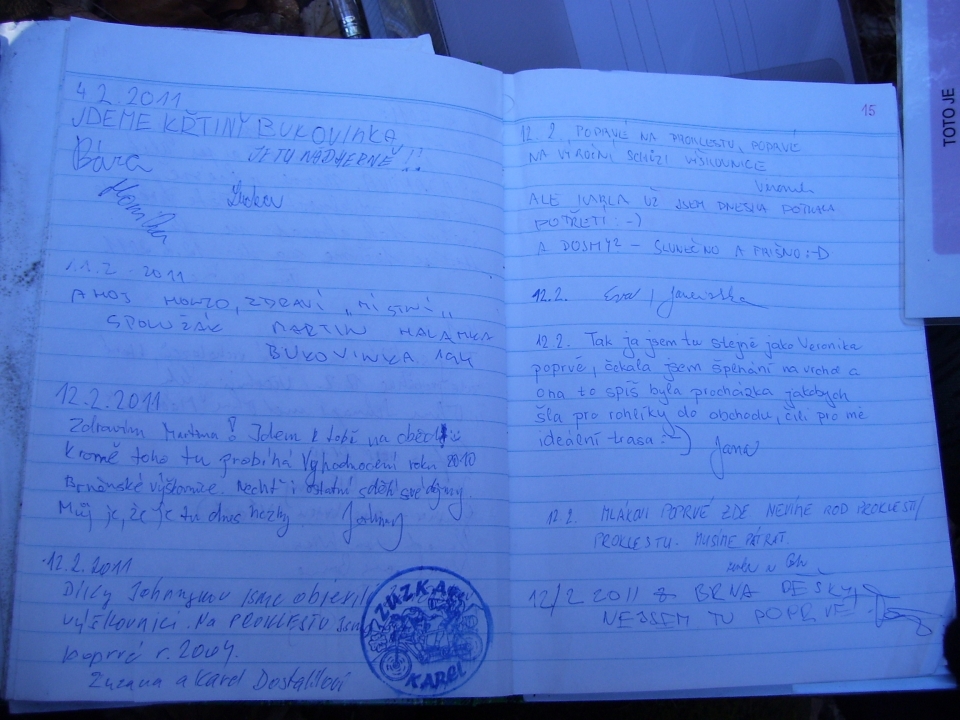 4.2.2011
JDEME KŘTINY BUKOVINKA
JE TU NÁDHERNĚ !!
Bára
11.2.2011
AHOJ HONZO, ZDRAVÍ „MÍSTNÍ"
SPOLUŽÁK MARTIN HALAMKA
BUKOVINKA 194
12.2.2011
Zdravím Martina! Jdem k tobě na oběd
Kromě toho tu probíhá Vyhodnocení roku 2010
Brněnské výškovnice. Nechť i ostatní sdělí své dojmy.
Můj je, že je tu dnes hezky
12.2.2011
Díky Johnymu jsme objevili
výškovnici. Na PROKLESTU jsme
poprvé r. 2004.
Zuzana a Karel Dostálovi
ZUZKA
KAREL
15
12.2. POPRVÉ NA PROKLESTU, POPRVÉ
NA VÝROČNÍ SCHŮZI VÝŠKOVNICE
Veronika
ALE KARLA UŽ JSEM DNESKA POTKALA
POTŘETÍ :-)
A DOJMY? - SLUNEČNO A PRIŠNO :-D
12.2. Eva,
12.2. Tak ja jsem tu stejně jako Veronika
poprvé, čekala jsem šplhání na vrchol a
ona to spíš byla procházka jakobych
šla pro rohlíky do obchodu, čili pro mě
ideální trasa :-) Jana
12.2. MLÁKOVI POPRVÉ ZDE NEVÍME KOD PROKLESTI/
PROKLESTU. MUSÍME PÁTRAT.
12/2 2011 Z BRNA DEŠKY,
NEJSEM TU POPRVÉ!
TOTO JE